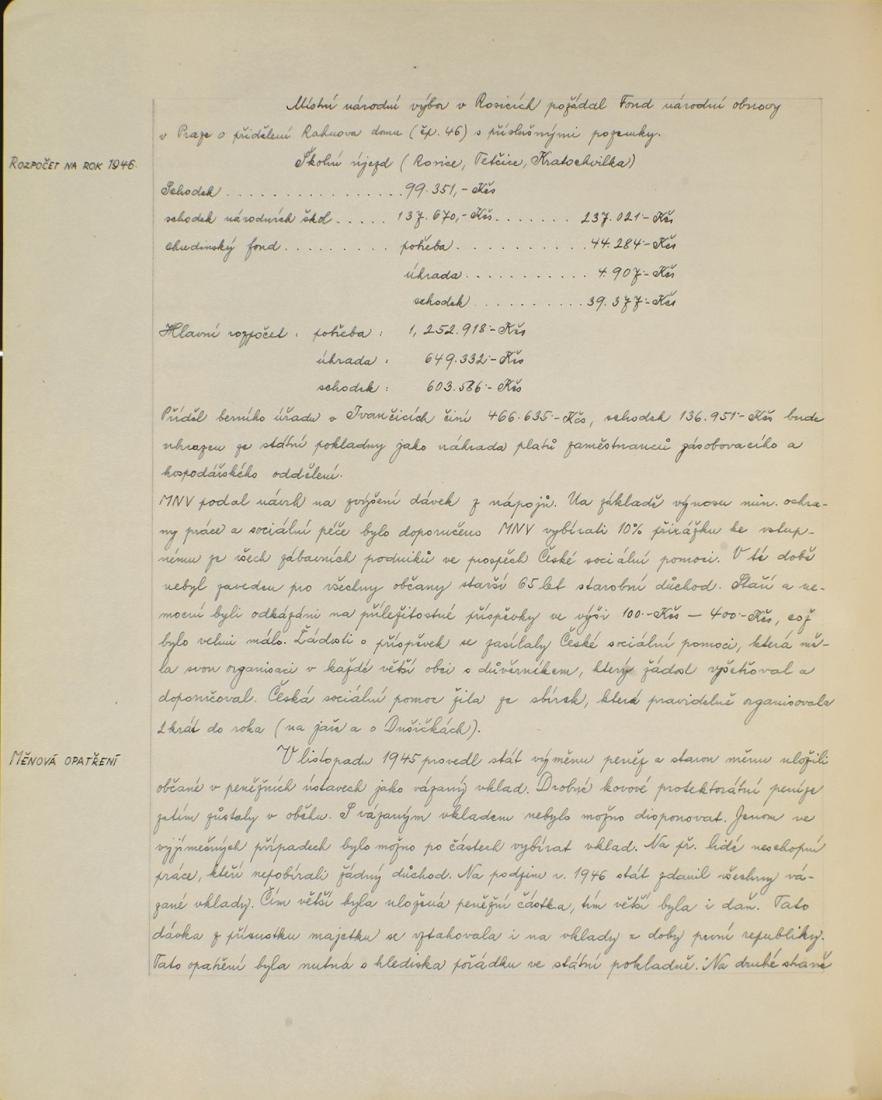 Místní národní výbor v Rosicích požádal Fond národní obnovy
v Praze o přidělení Rahnova domu (čp. 46) s příslušnými pozemky.
ROZPOČET NA ROK 1946.
Školní újezd (Rosice, Tetčice, Kratochvilka)
Schodek . . . . . . . . . . . . . . . 99.351,- Kčs
schodek národních škol . . . . . 137.670,- Kčs . . . . . . . 237.021·- Kčs
chudinský fond . . . . . . . . . potřeba . . . . . . . . . . 44.284·- Kčs
úhrada . . . . . . . . . . 4.907·- Kčs
schodek . . . . . . . . . 39.377·- Kčs
Hlavní rozpočet : potřeba : 1,252.918·- Kčs
úhrada : 649.332·- Kčs
schodek : 603.586·- Kčs
Příděl berního úřadu v Ivančicích činí 466.635·- Kčs, schodek 136.951·- Kčs bude
uhrazen ze státní pokladny jako náhrada platů zaměstnanců zásobovacího a
hospodářského oddělení.
MNV podal návrh na zvýšení dávek z nápojů. Na základě výnosu min. ochra-
ny práce a sociální péče bylo doporučeno MNV vybírati 10% přirážku ke vstup-
nému ze všech zábavních podniků ve prospěch České sociální pomoci. V té době
nebyl zaveden pro všechny občany starší 65 let starobní důchod. Staří a ne-
mocní byli odkázáni na příležitostné příspěvky ve výši 100·- Kčs — 400·- Kčs, což
bylo velmi málo. Žádosti o příspěvek se zasílaly České sociální pomoci, která mě-
la svou organisaci v každé větší obci s důvěrníkem, který žádost vyšetřoval a
doporučoval. Česká sociální pomoc žila ze sbírek, které pravidelně organisovala
2krát do roka (na jaře a o Dušičkách).
MĚNOVÁ OPATŘENÍ
V listopadu 1945 provedl stát výměnu peněz a starou měnu uložili
občané v peněžních ústavech jako vázaný vklad. Drobné kovové protektorátní peníze
zatím zůstaly v oběhu. S vázaným vkladem nebylo možno disponovat. Jenom ve
výjimečných případech bylo možno po částech vybírat vklad. Na př. lidé neschopní
práce, kteří nepobírali žádný důchod. Na podzim r. 1946 stát zdanil všechny vá-
zané vklady. Čím větší byla uložená peněžní částka, tím větší byla i daň. Tato
dávka z přírůstku majetku se vztahovala i na vklady z doby první republiky.
Tato opatření byla nutná s hlediska pořádku ve státní pokladně. Na druhé straně